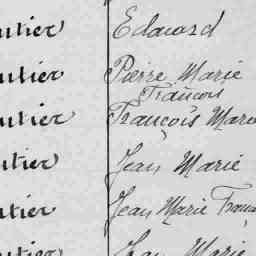 utier Edouard
utier Pierre Marie
François
utier François Marie
utier Jean Marie
utier Jean Marie Franço
utier Jean Marie